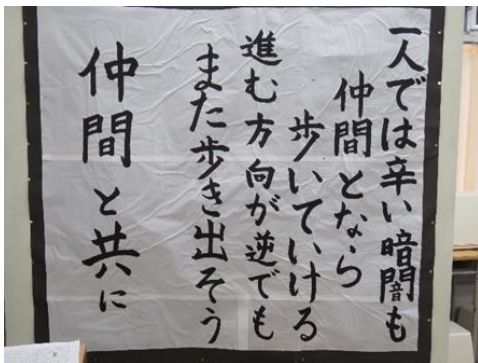 一人では辛い暗闇も
仲間となら
歩いていける
進む方向が逆でも
また歩き出そう
仲間と共に